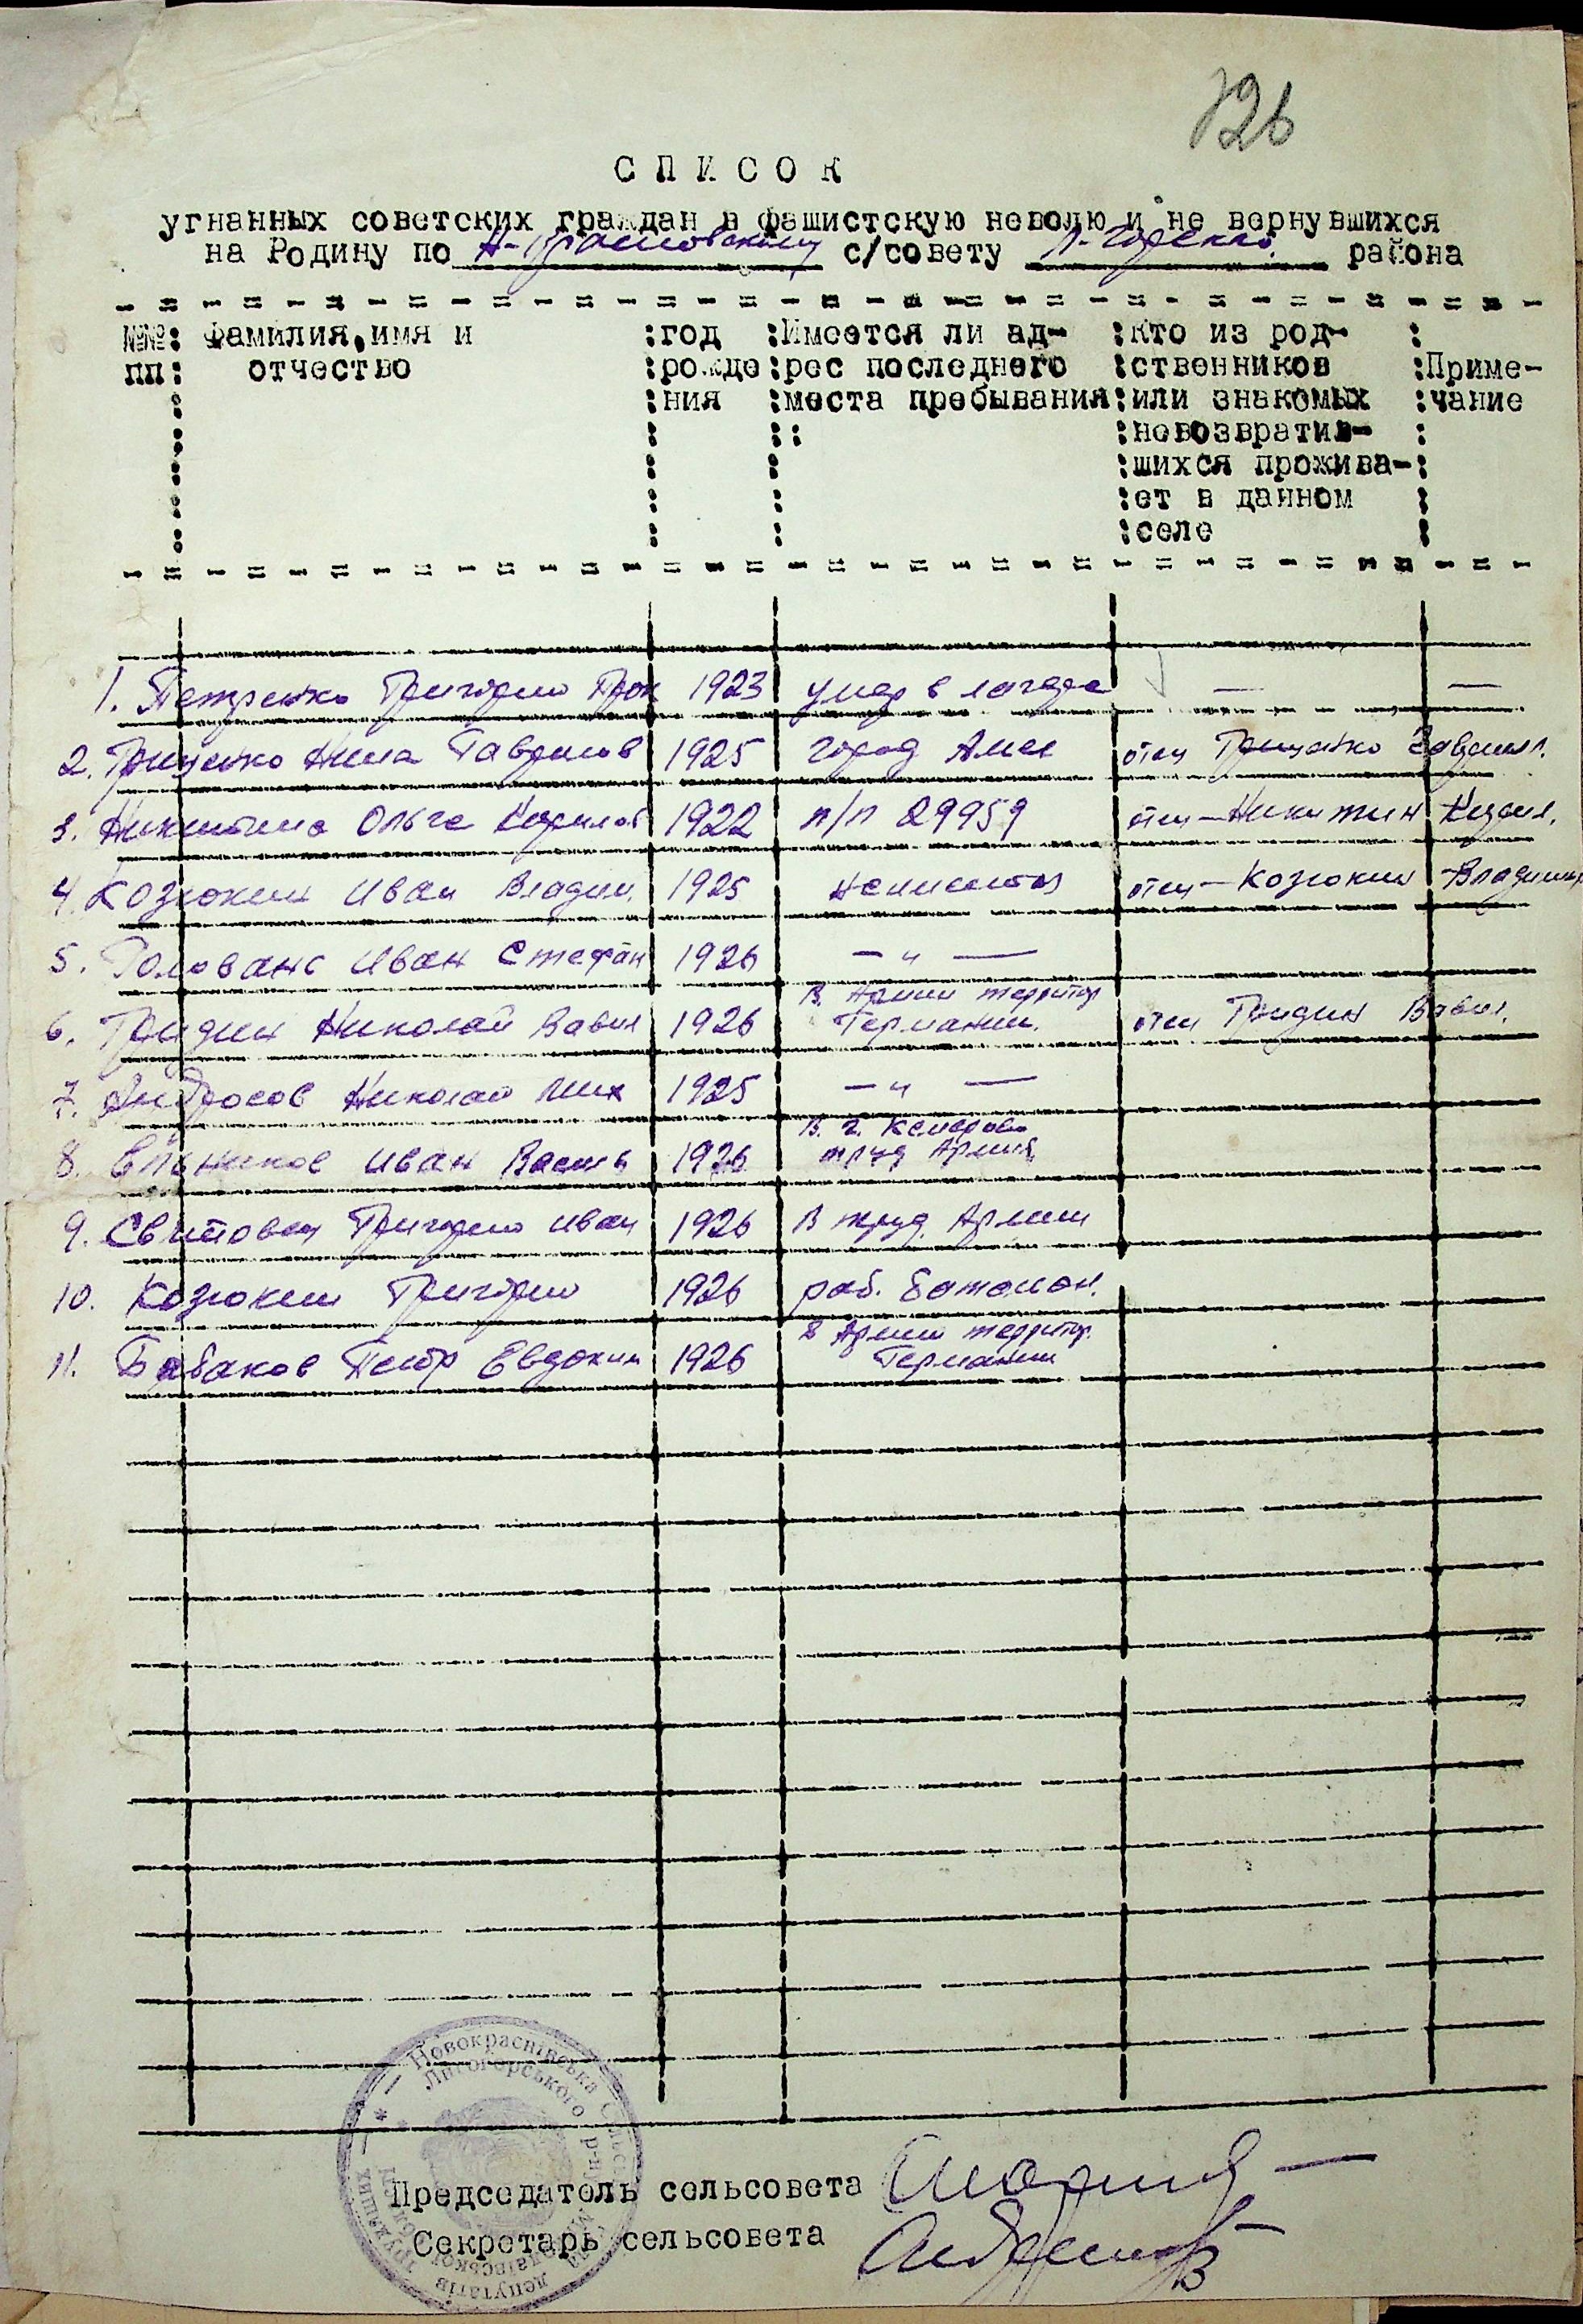 126
СПИСОК
угнанных советских граждан в фашистскую неволю и не вернувшихся
на Родину по Н-Красновскому с/совету Л-Горского района
№№ пп : Фамилия, имя и отчество : год рождения : Имеется ли адрес последнего места пребывания : кто из родственников или знакомых невозвратившихся проживает в данном селе : Примечание
1. Петренко Григорий Прок 1923 умер в лагере — —
2. Гриценко Нина Гаврилов 1925 город отец Гриценко Гаврил.
3. Никитина Ольга Кирилов 1922 п/п 29959 отец — Никитин Кирил.
4. Козюкин Иван Владим. 1925 неизвестно отец — Козюкин Владимир
5. Иван Стефан 1926 — " —
6. Гридин Николай Вавил 1926 В Армии территор Германии. отец Гридин Вавил.
7. Андросов Николай Мих 1925 — " —
8. Ельников Иван Василь 1926 В г. Кемерово труд Армия
9. Григорий Иван 1926 В труд. Армии
10. Козюкин Григорий 1926 раб. батальон.
11. Бабаков Петр Евдоким 1926 В Армии территор. Германии
Новокраснівська Сільська Рада
Лисогорського р-ну
депутатів трудящих
Председатель сельсовета
Секретарь сельсовета